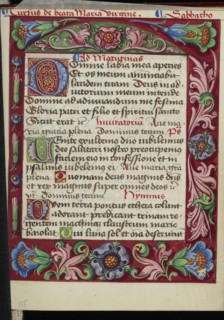 Cursus de beata Maria virgine. Sabbatho
Ad Matutinas
Domine labia mea aperies
Et os meum annunciabit
laudem tuam Deus in ad
iutorium meum intende
Domine ad adiuvandum me festina
Gloria patri et filio et spiritui sancto
Sicut erat Invitatoria Ave ma
ria gratia plena Dominus tecum Ps
Venite exultemus dño iubilemus
deo salutari nostro preoccupemus
faciem eius in confessione et in
psalmis iubilemus ei Ave maria gra
plena Quoniam deus magnus dñs
et rex magnus super omnes deos
Dominus tecum Hymnus
Quem terra pontus ethera colunt
adorant predicant trinam re
gentem machinam claustrum marie
baiolat Cui luna sol et oīa deserviunt